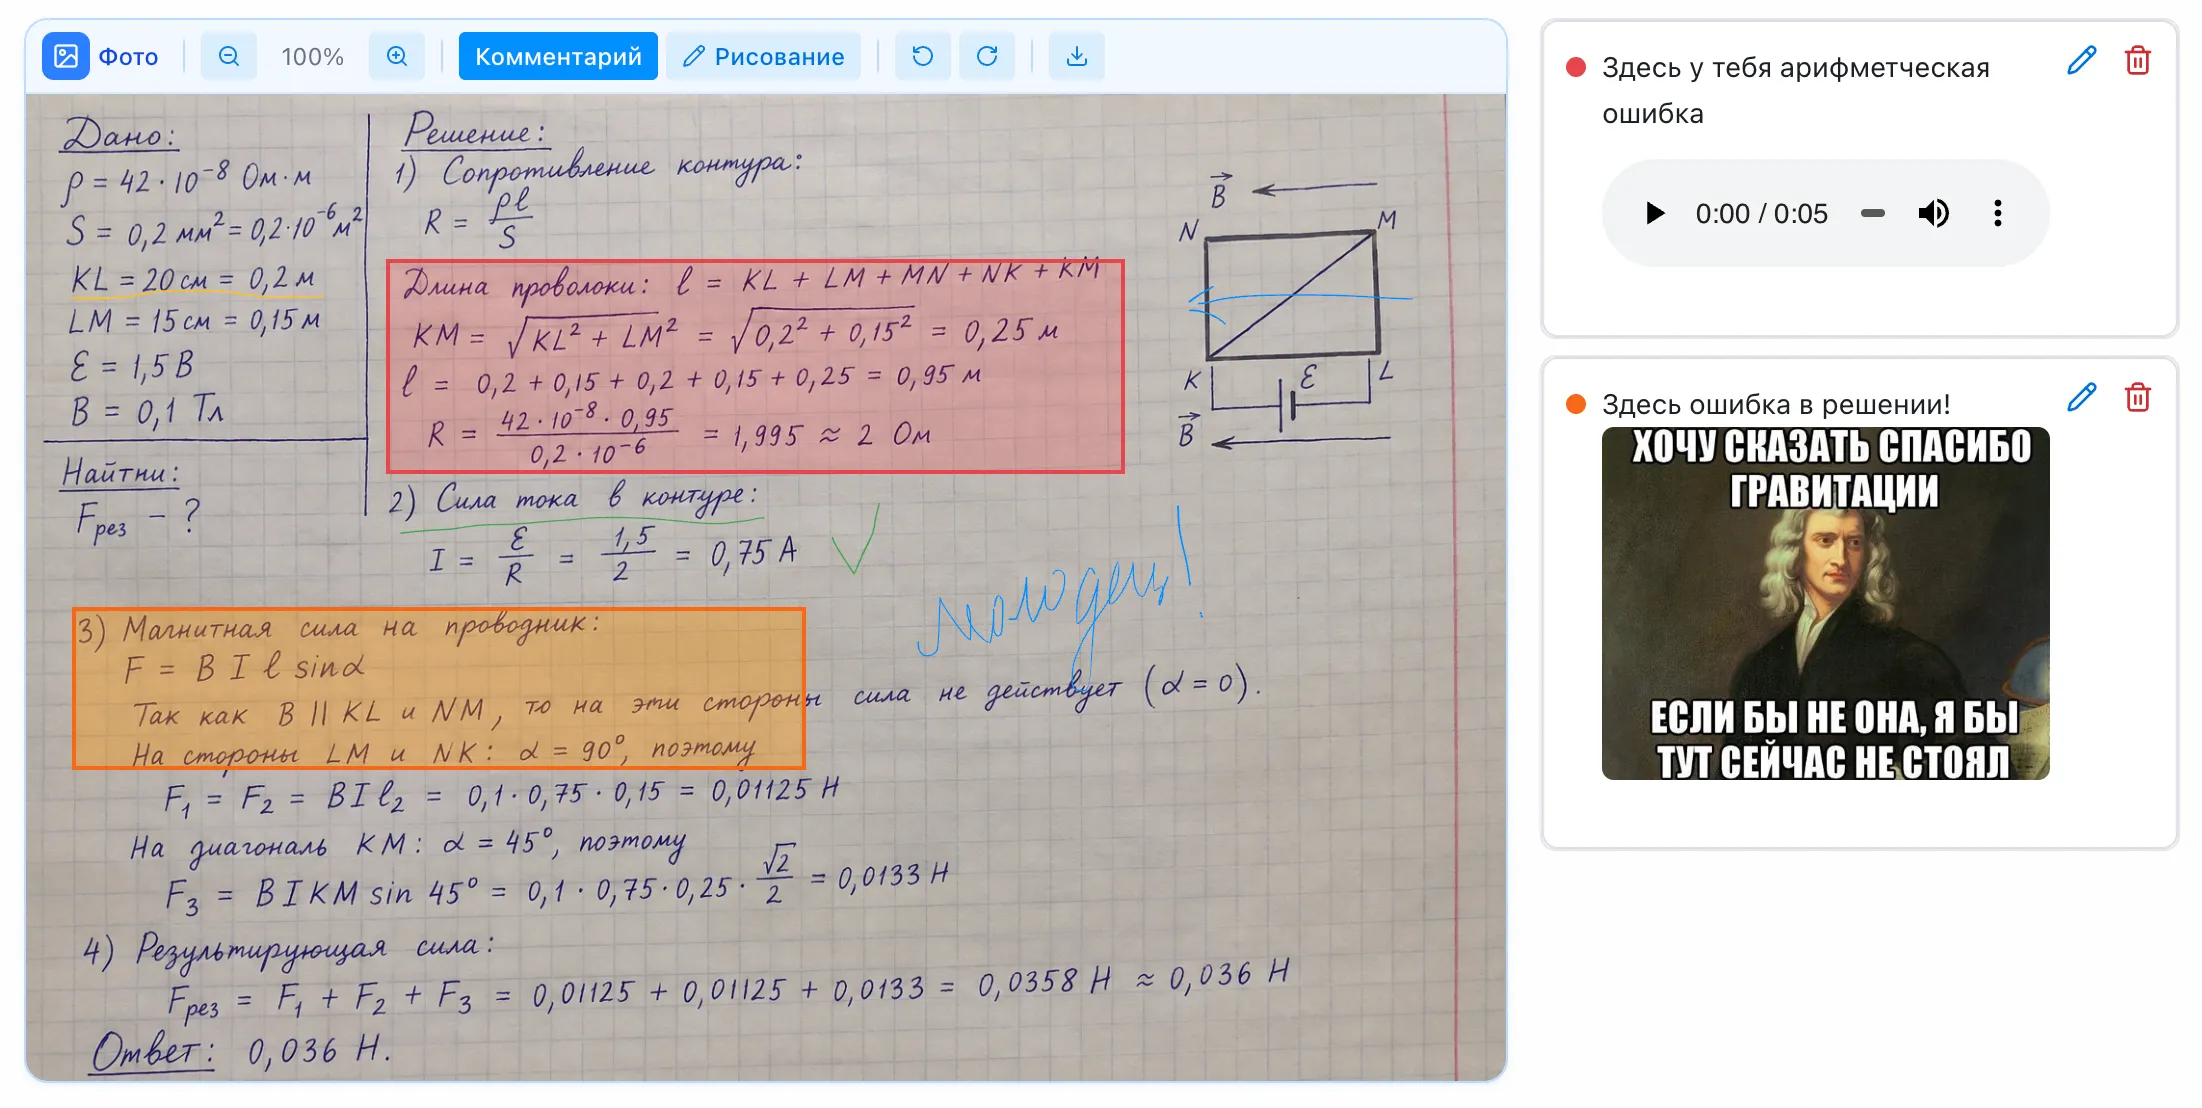 Фото
100%
Комментарий
Рисование
Дано:
ρ = 42 · 10⁻⁸ Ом·м
S = 0,2 мм² = 0,2·10⁻⁶ м²
KL = 20 см = 0,2 м
LM = 15 см = 0,15 м
Ɛ = 1,5 В
B = 0,1 Тл
Найтни:
Fрез – ?
Решение:
1) Сопротивление контура:
R = ρℓ/S
Длина проволоки: ℓ = KL + LM + MN + NK + KM
KM = √KL² + LM² = √0,2² + 0,15² = 0,25 м
ℓ = 0,2 + 0,15 + 0,2 + 0,15 + 0,25 = 0,95 м
R = 42·10⁻⁸·0,95/0,2·10⁻⁶ = 1,995 ≈ 2 Ом
2) Сила тока в контуре:
I = Ɛ/R = 1,5/2 = 0,75 А
B
N
M
K
Ɛ
L
B
молодец!
3) Магнитная сила на проводник:
F = B I ℓ sinα
Так как B || KL и NM, то на эти стороны сила не действует (α = 0).
На стороны LM и NK: α = 90°, поэтому
F₁ = F₂ = B I ℓ₂ = 0,1 · 0,75 · 0,15 = 0,01125 Н
На диагональ KM: α = 45°, поэтому
F₃ = B I KM sin 45° = 0,1 · 0,75 · 0,25 · √2/2 = 0,0133 Н
4) Результирующая сила:
Fрез = F₁ + F₂ + F₃ = 0,01125 + 0,01125 + 0,0133 = 0,0358 Н ≈ 0,036 Н
Ответ: 0,036 Н.
Здесь у тебя арифметческая
ошибка
0:00 / 0:05
Здесь ошибка в решении!
ХОЧУ СКАЗАТЬ СПАСИБО
ГРАВИТАЦИИ
ЕСЛИ БЫ НЕ ОНА, Я БЫ
ТУТ СЕЙЧАС НЕ СТОЯЛ